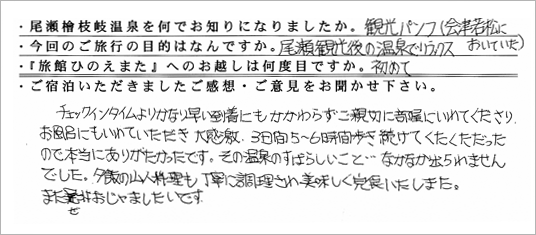 ・尾瀬檜枝岐温泉を何でお知りになりましたか。観光パンフ(会津若松に
おいていた)
・今回のご旅行の目的はなんですか。尾瀬観光後の温泉でリラックス
・『旅館ひのえまた』へのお越しは何度目ですか。初めて
・ご宿泊いただきましたご感想・ご意見をお聞かせ下さい。
チェックインタイムよりかなり早い到着にもかかわらずご親切に部屋にいれてくださり、
お風呂にもいれていただき大感激。3日間5〜6時間歩き続けてくたくただった
ので本当にありがたかったです。その温泉のすばらしいこと…なかなか出られません
でした。夕飯の山人料理も丁寧に調理され美味しく完食いたしました。
またぜおじゃましたいです